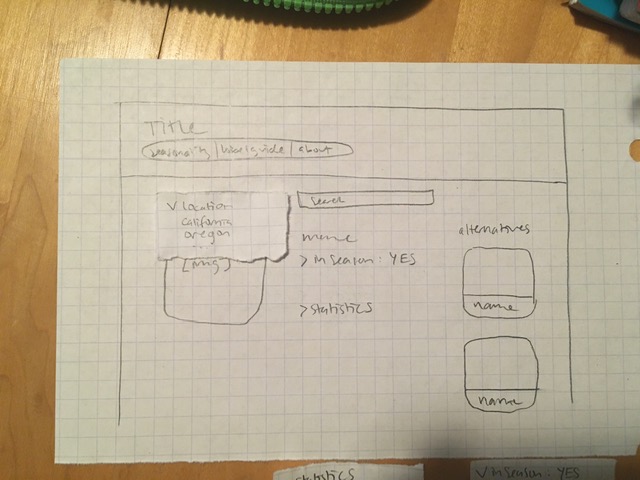 Title
seasonality | local guide | about
v location
california
oregon
...
[img]
search
name
> in season: YES
> statistics
alternatives
name
name
statistics
v in season: YES